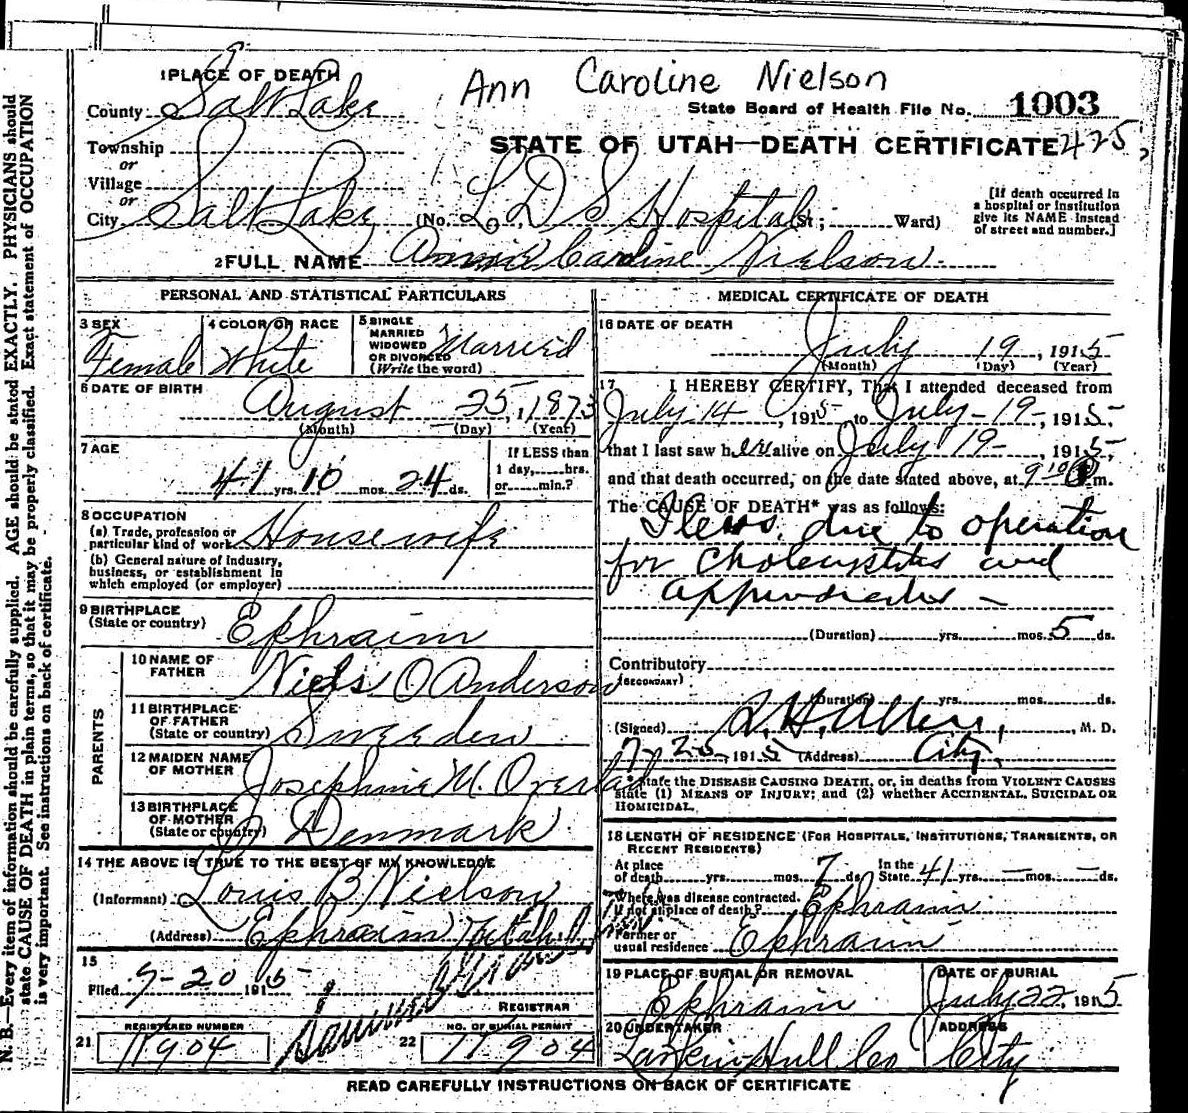 Ann Caroline Nielson
1 PLACE OF DEATH
County Salt Lake
State Board of Health File No. 1003
Township
STATE OF UTAH—DEATH CERTIFICATE 425
or
Village
or
City Salt Lake (No. L D S Hospital St; Ward)
[If death occurred in
a hospital or institution
give its NAME instead
of street and number.]
2 FULL NAME Annie Caroline Nielson
PERSONAL AND STATISTICAL PARTICULARS
3 SEX
Female
4 COLOR OR RACE
White
5 SINGLE
MARRIED
WIDOWED
OR DIVORCED
(Write the word)
Married
6 DATE OF BIRTH
August 25, 1873
(Month) (Day) (Year)
7 AGE
41 yrs. 10 mos. 24 ds.
If LESS than
1 day, hrs.
or min.?
8 OCCUPATION
(a) Trade, profession or
particular kind of work Housewife
(b) General nature of industry,
business, or establishment in
which employed (or employer)
9 BIRTHPLACE
(State or country) Ephraim
PARENTS
10 NAME OF
FATHER Niels O Anderson
11 BIRTHPLACE
OF FATHER
(State or country) Sweeden
12 MAIDEN NAME
OF MOTHER Josephine M.
13 BIRTHPLACE
OF MOTHER
(State or country) Denmark
14 THE ABOVE IS TRUE TO THE BEST OF MY KNOWLEDGE
(Informant) Louis B Nielson
(Address) Ephraim Utah
15
Filed 7-20 1915
REGISTRAR
REGISTERED NUMBER
21 11904
NO. OF BURIAL PERMIT
22 11904
MEDICAL CERTIFICATE OF DEATH
16 DATE OF DEATH
July 19, 1915
(Month) (Day) (Year)
17 I HEREBY CERTIFY, That I attended deceased from
July 14, 1915 to July 19, 1915
that I last saw her alive on July 19, 1915
and that death occurred, on the date stated above, at 9 10 m.
The CAUSE OF DEATH* was as follows:
Ileus due to operation
for Cholecystitis and
appendicitis
(Duration) yrs. mos. 5 ds.
Contributory
(SECONDARY)
(Duration) yrs. mos. ds.
(Signed) M. D.
7/ 1915 (Address) City
*State the DISEASE CAUSING DEATH, or, in deaths from VIOLENT CAUSES
state (1) MEANS OF INJURY; and (2) whether ACCIDENTAL, SUICIDAL OR
HOMICIDAL.
18 LENGTH OF RESIDENCE (FOR HOSPITALS, INSTITUTIONS, TRANSIENTS, OR
RECENT RESIDENTS)
At place
of death yrs. mos. 7 ds.
In the
State 41 yrs. — mos. — ds.
Where was disease contracted,
if not at place of death? Ephraim
Former or
usual residence Ephraim
19 PLACE OF BURIAL OR REMOVAL
Ephraim
DATE OF BURIAL
July 22 1915
20 UNDERTAKER
Larkin Hull Co
ADDRESS
City
READ CAREFULLY INSTRUCTIONS ON BACK OF CERTIFICATE
N. B.—Every item of information should be carefully supplied. AGE should be stated EXACTLY. PHYSICIANS should
state CAUSE OF DEATH in plain terms, so that it may be properly classified. Exact statement of OCCUPATION
is very important. See instructions on back of certificate.